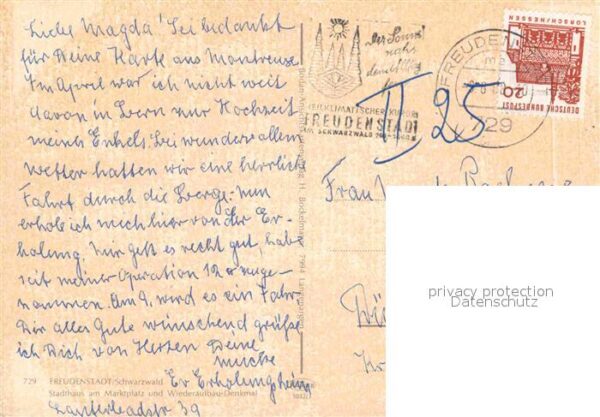 Liebe Magda! Sei bedankt
für Deine Karte aus Montreux
Im April war ich nicht weit
davon in Bern zur Hochzeit
meines Enkels. Bei wunderallem
Wetter hatten wir eine herrliche
Fahrt durch die Berge. Nun
erhole ich mich hier von der Er-
holung. Mir geht es recht gut, habe
seit meiner Operation 12 zuge-
nommen. Am 9. wird es ein Jahr.
Dir alles Gute wünschend grüße
ich Dich von Herzen Deine
Ev Erholungsheim
Lauterbadstr 39
729 FREUDENSTADT/Schwarzwald
Stadthaus am Marktplatz und Wiederaufbau-Denkmal
HEILKLIMATISCHER KURORT
FREUDENSTADT
IM SCHWARZWALD
FREUDEN
729
LORSCH/HESSEN
20
DEUTSCHE BUNDESPOST
II 25
Frau
privacy protection
Datenschutz